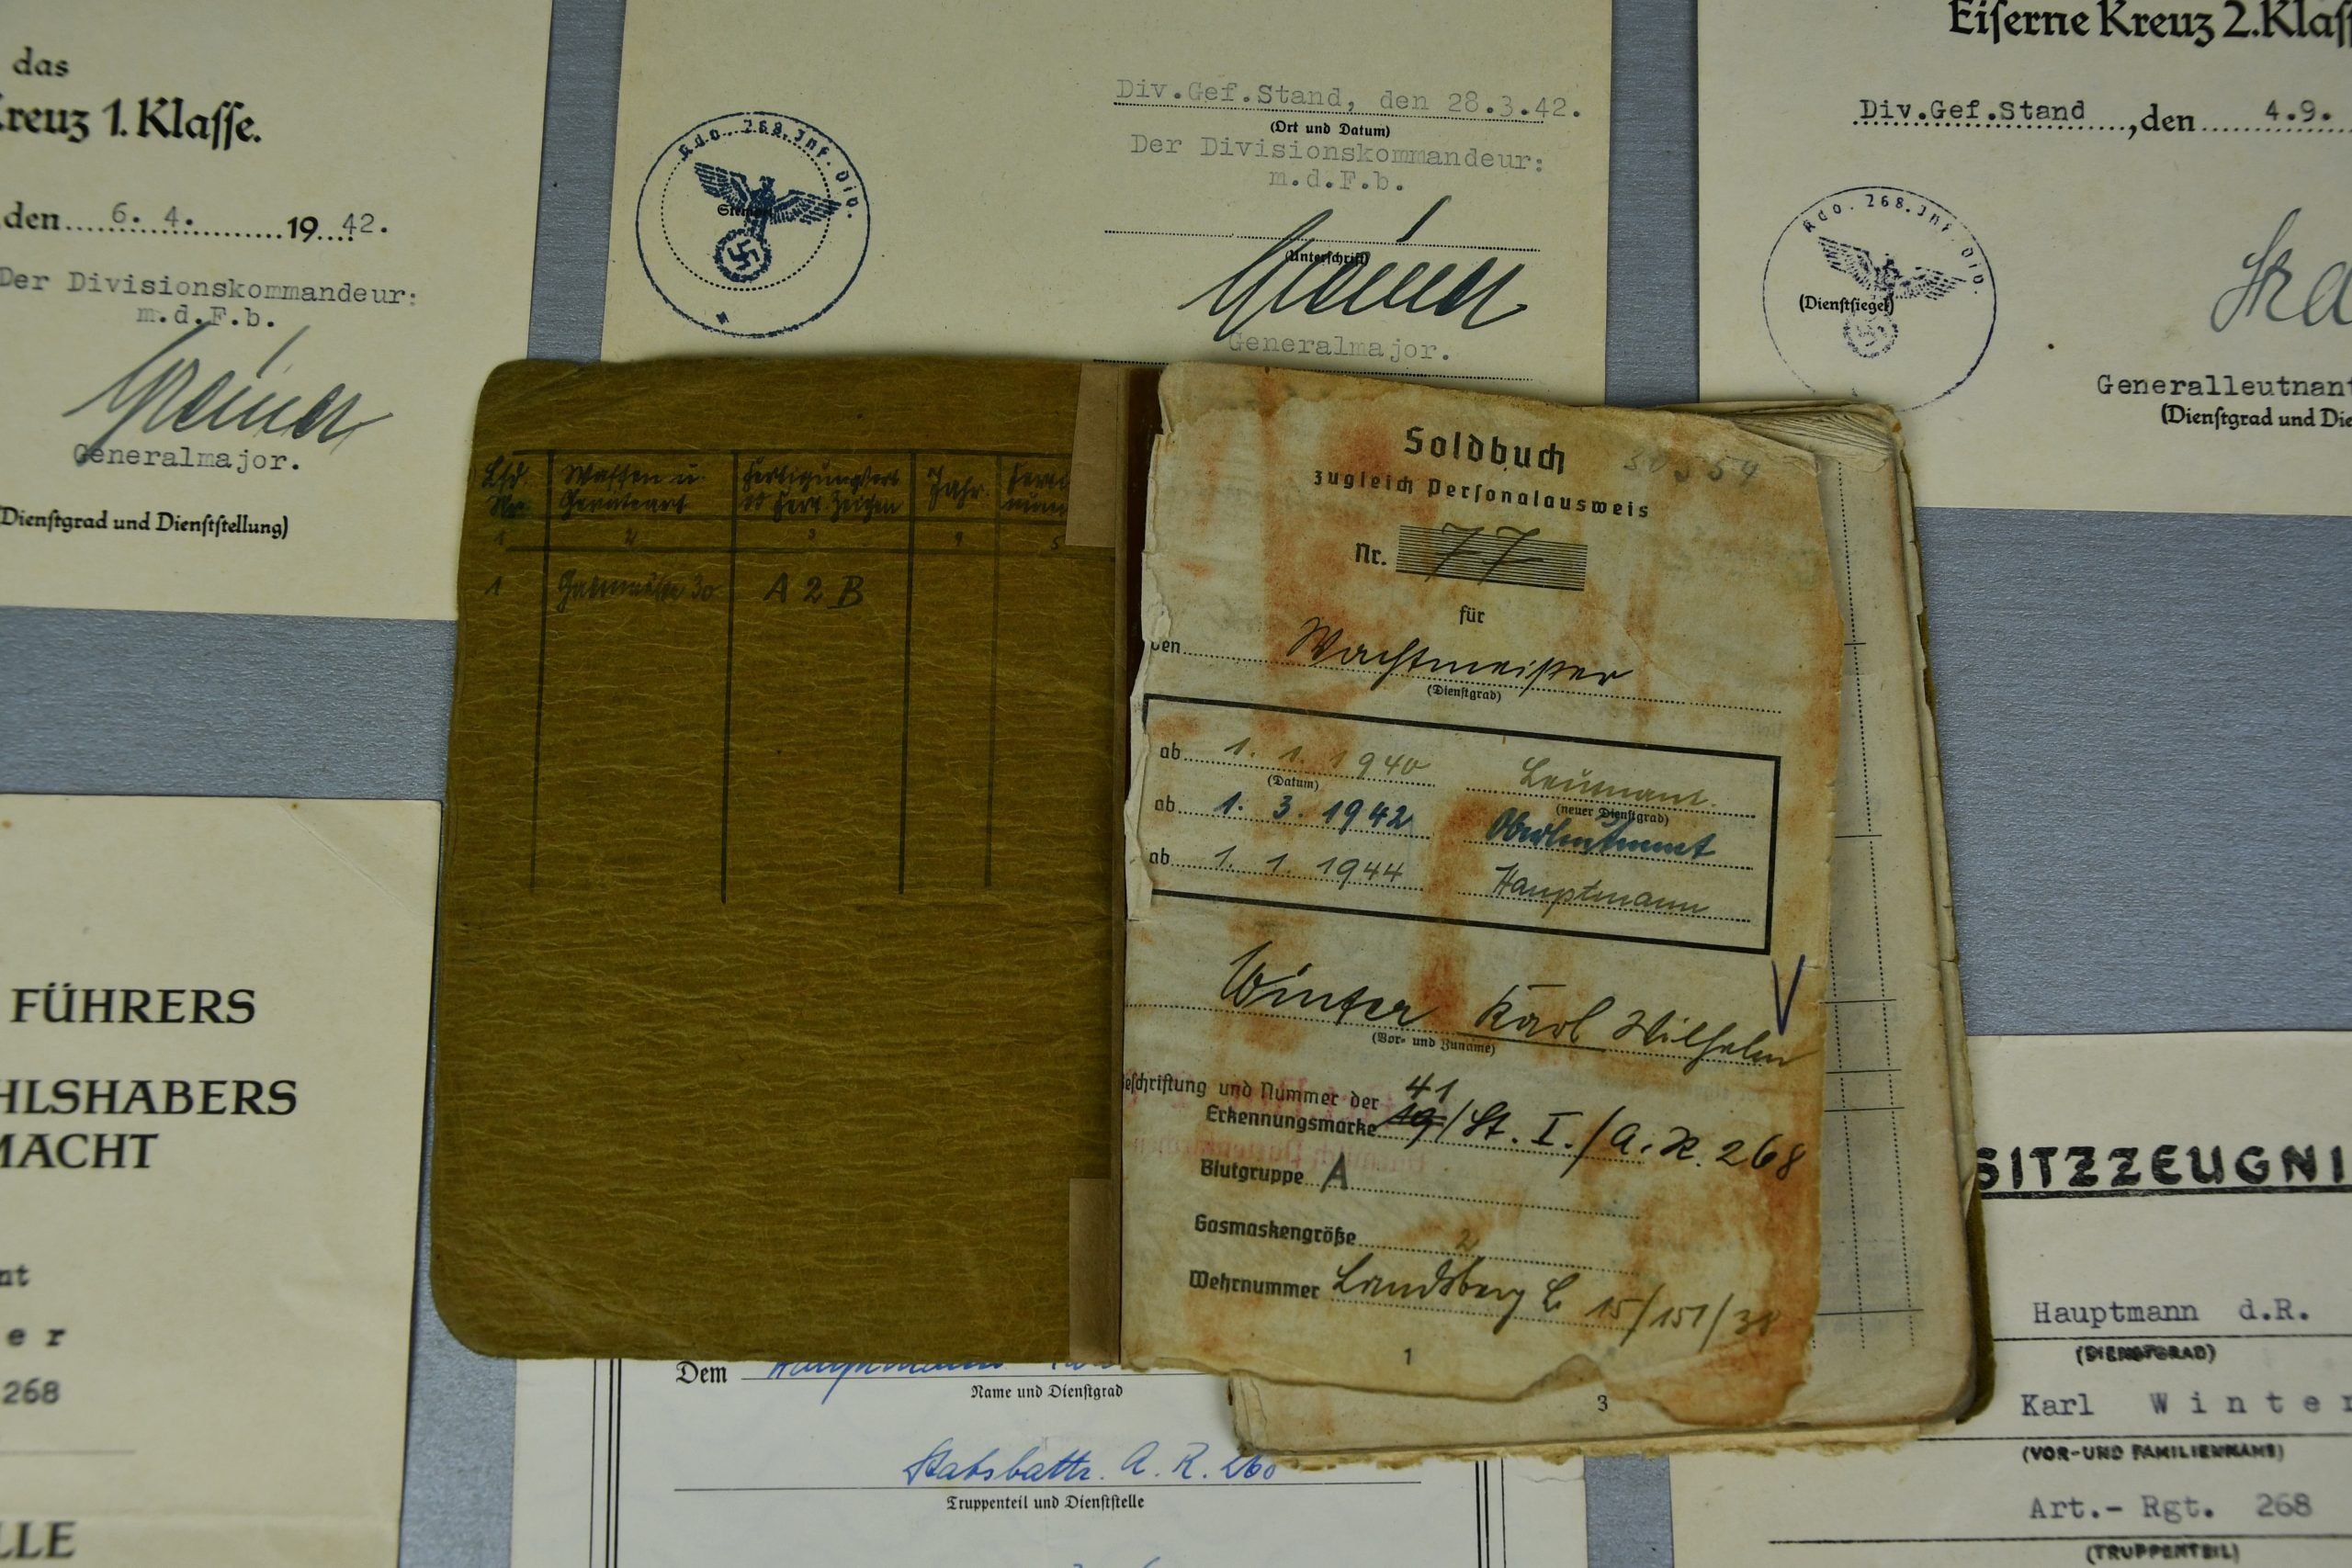 das
Kreuz 1. Klasse.
den 6. 4. 19 42.
Der Divisionskommandeur:
m.d.F.b.
Greiner
Generalmajor.
(Dienstgrad und Dienststellung)
Div.Gef.Stand, den 28.3.42.
(Ort und Datum)
Der Divisionskommandeur:
m.d.F.b.
(Unterschrift)
Greiner
Generalmajor.
Kdo. 268. Inf. Div.
Eiserne Kreuz 2. Klas
Div.Gef.Stand, den 4.9.
Kdo. 268. Inf. Div.
(Dienstsiegel)
Generalleutnant
(Dienstgrad und Die
Lfd. Nr.
Waffen u. Geräteart
Jahr
1 2 3 4 5
1 Gasmaske 30 A 2 B
Soldbuch
zugleich Personalausweis
Nr. 77
für
den Wachtmeister
(Dienstgrad)
ab 1. 1. 1940 Leutnant.
(Datum) (neuer Dienstgrad)
ab 1. 3. 1942 Oberleutnant
ab 1. 1. 1944 Hauptmann
Winter Karl Wilhelm
(Vor- und Zuname)
Beschriftung und Nummer der 41
Erkennungsmarke 19/St. I./A.R. 268
Blutgruppe A
Gasmaskengröße 2
Wehrnummer Landsberg L 15/151/38
1
3
FÜHRERS
HLSHABERS
MACHT
nt
e r
268
LLE
Dem Hauptmann
Name und Dienstgrad
Stabsbattr. A. R. 268
Truppenteil und Dienststelle
SITZZEUGNI
Hauptmann d.R.
(DIENSTGRAD)
Karl Winter
(VOR-UND FAMILIENNAME)
Art.- Rgt. 268
(TRUPPENTEIL)